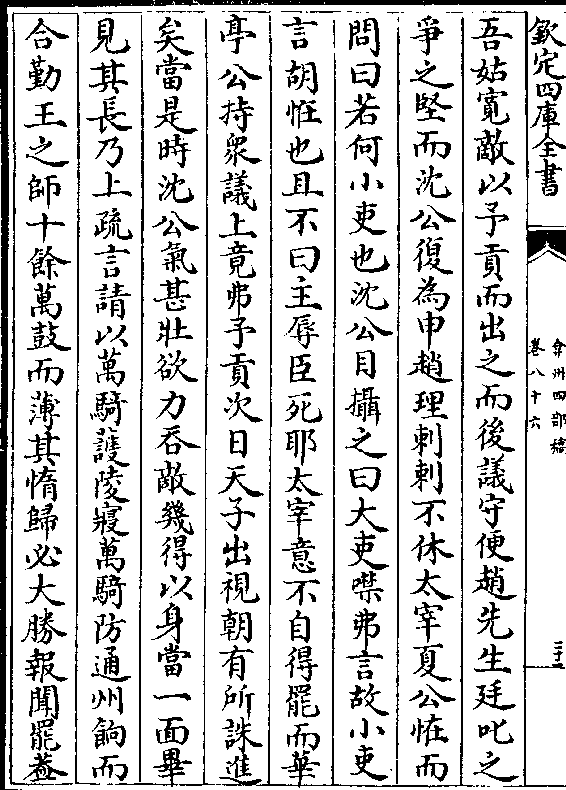 欽定四庫全書
弇州四部稿
卷八十六
二十三
吾姑寛敵以予貢而出之而後議守便趙先生廷叱之
爭之堅而沈公復為申趙理刺刺不休太宰夏公恠而
問曰若何小吏也沈公目攝之曰大吏噤弗言故小吏
言胡恠也且不曰主辱臣死耶太宰意不自得罷而華
亭公持衆議上竟弗予貢次日天子出視朝有所誅進
矣當是時沈公氣甚壯欲力吞敵幾得以身當一面畢
見其長乃上疏言請以萬騎護陵寢萬騎防通州餉而
合勤王之師十餘萬鼓而薄其惰歸必大勝報聞罷葢